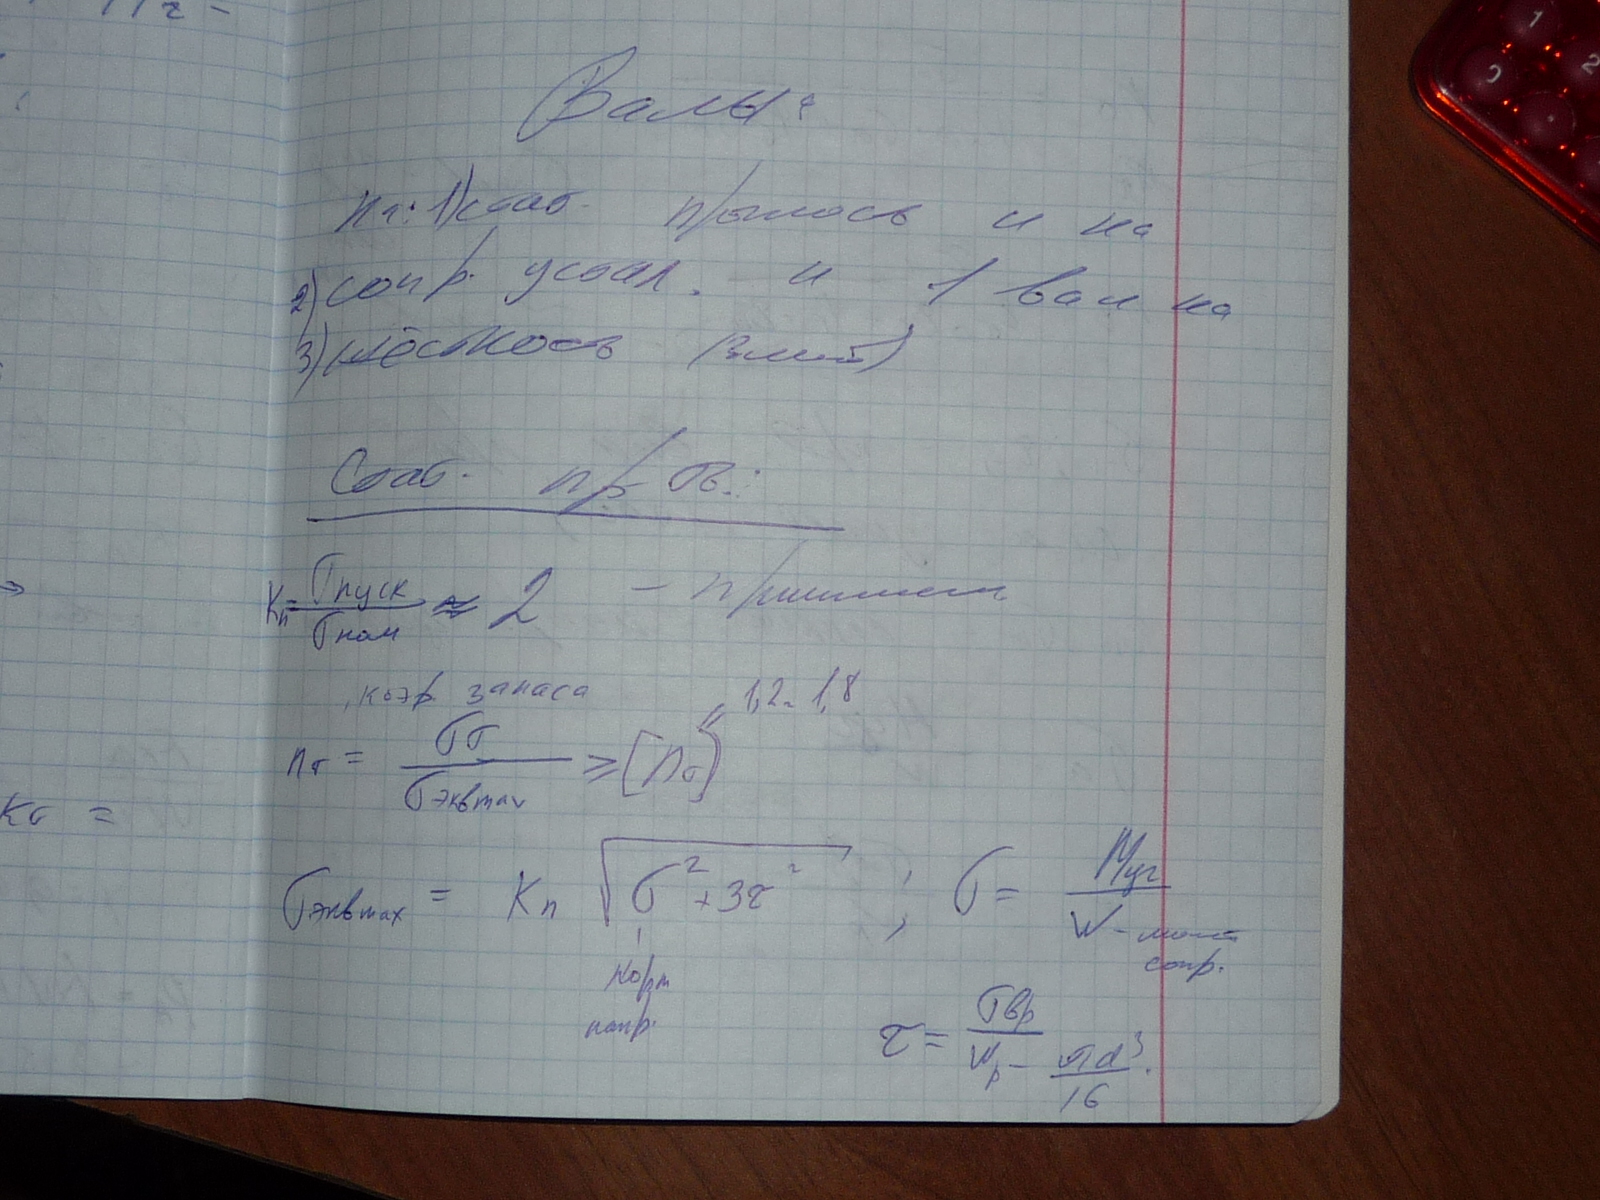 Валы:
1) стат. прочность и на
2) сопр. устал. и 1 вал на
3) жёсткость
Стат. пр-ть:
Kп = σпуск / σном ≈ 2 – принимаем
коэф. запаса
1,2-1,8
nσ = σт / σэквmax ≥ [nσ]
σэквmax = Kп √(σ² + 3τ²) ; σ = Mиг / W – мом. сопр.
норм
напр.
τ = σвр / Wp – πd³ / 16
Kσ =
1
2